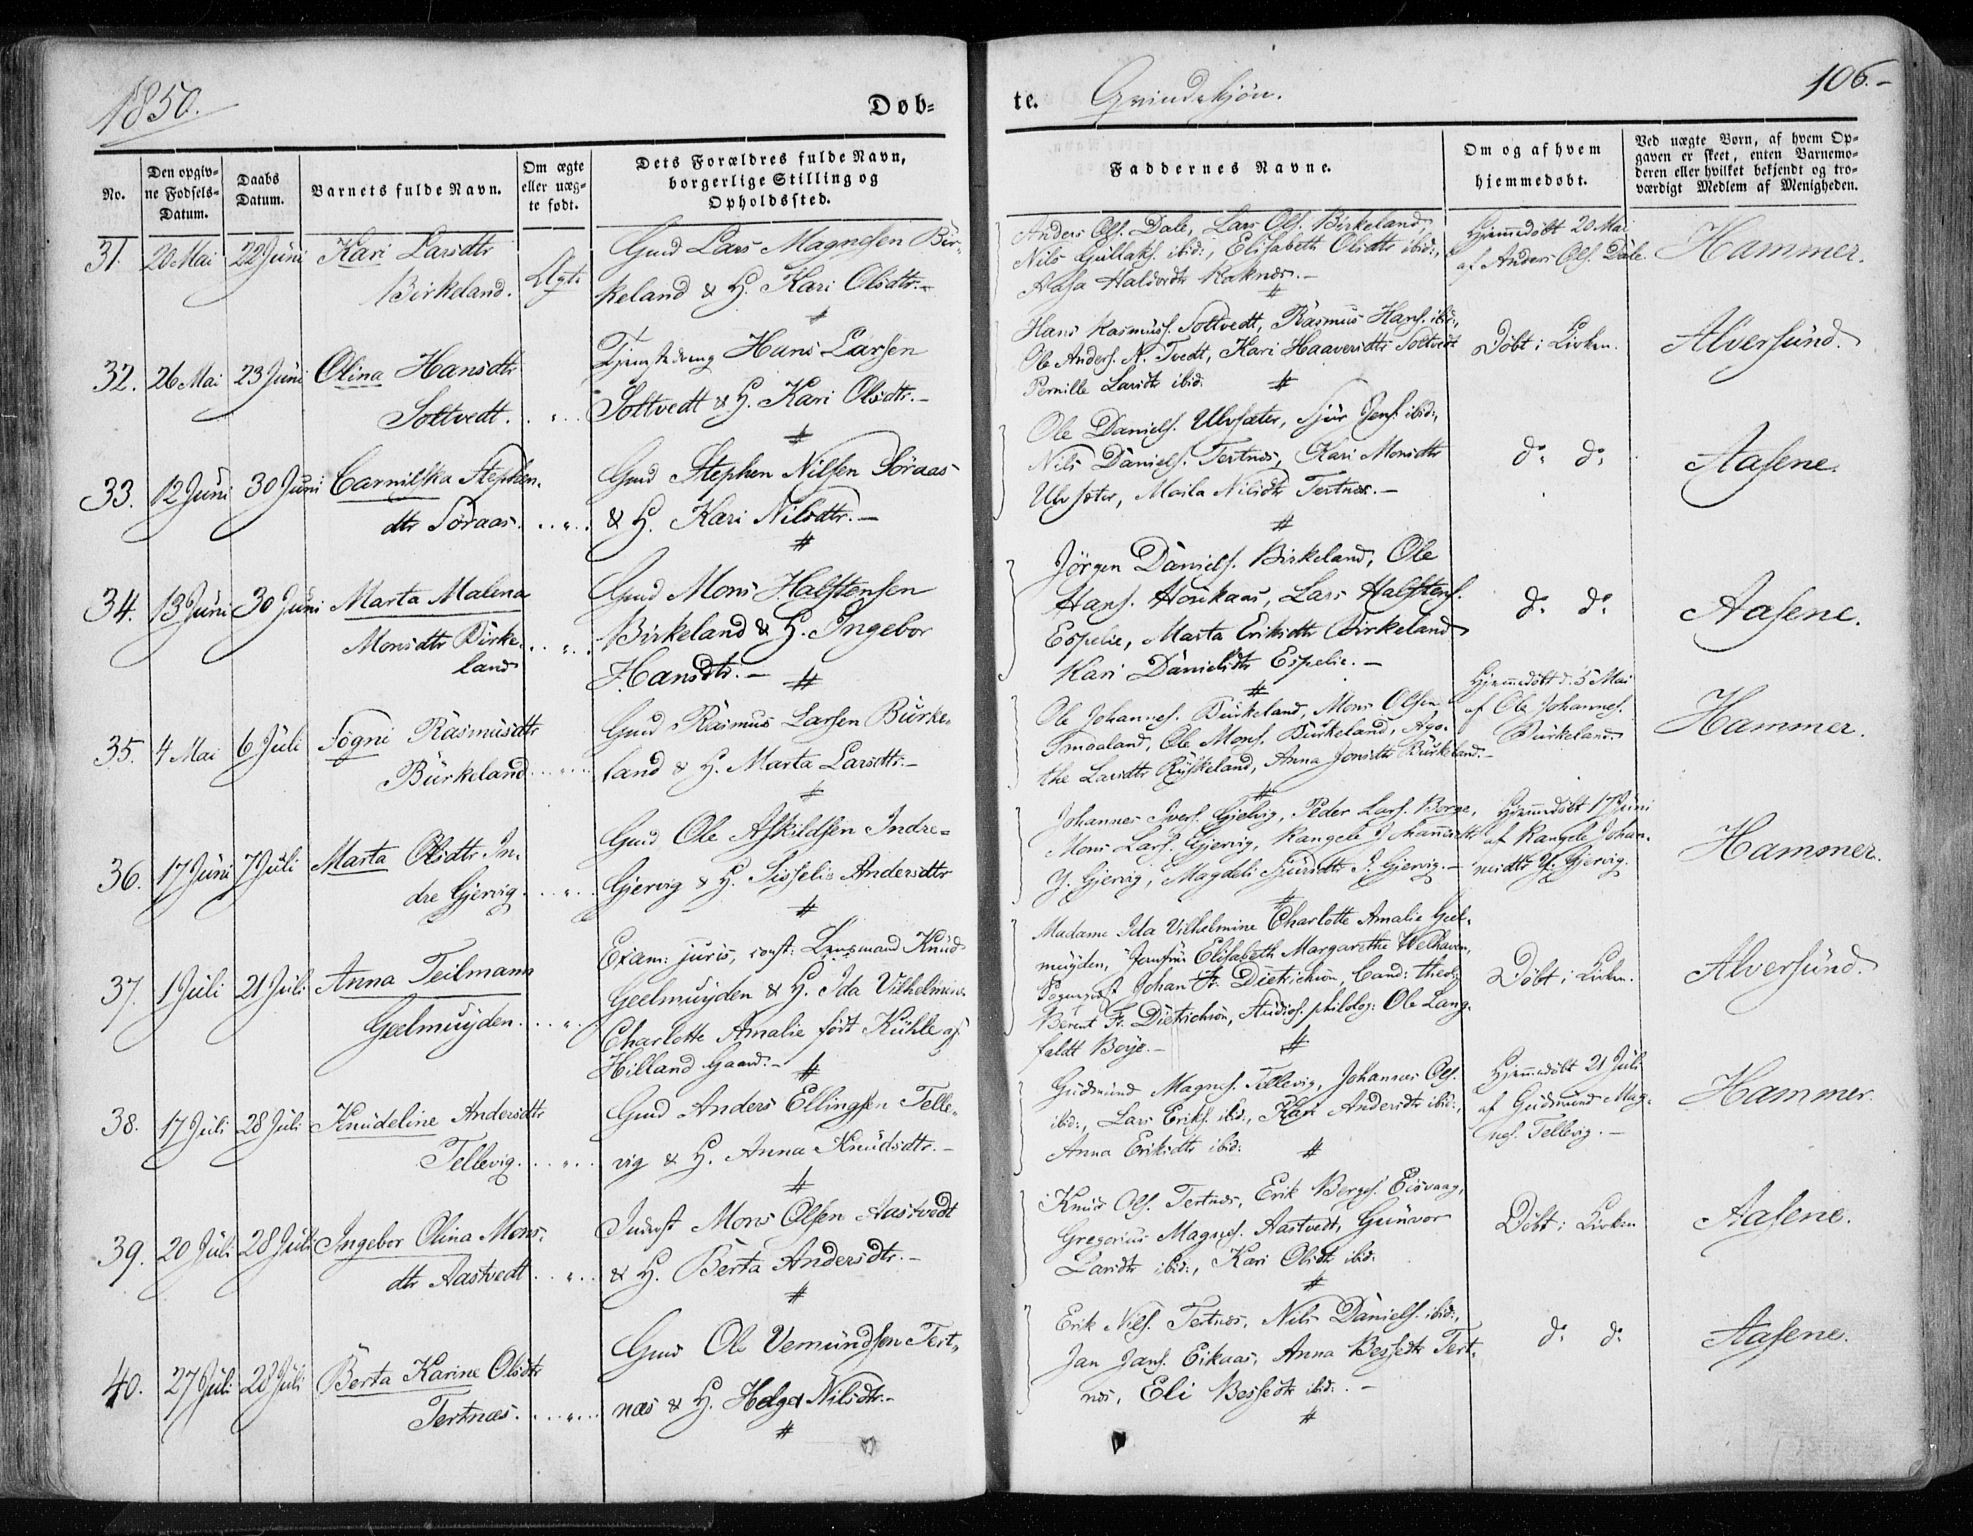 1850.
Døb-
te. Qvindekjön.
106.-
No.
Den opgiv-
ne Fødsels-
Datum.
Daabs
Datum.
Barnets fulde Navn.
Om ægte
eller uæg-
te født.
Dets Forældres fulde Navn,
borgerlige Stilling og
Opholdssted.
Faddernes Navne.
Om og af hvem
hjemmedøbt.
Ved uægte Børn, af hvem Op-
gaven er skeet, enten Barnemo-
deren eller hvilket bekjendt og tro-
værdigt Medlem af Menigheden.
31. 20 Mai 22 Juni Kari Larsdtr
Birkeland. Ægte
Gmd Lars Magnesen Bir-
keland & H. Kari Olsdtr.-
Anders Ols. Dale, Lars Ols. Birkeland,
Nils Gullaks. ibid:, Elisabeth Olsdtr ibid:,
Aasa Haldordtr Roknes.-
Hjemmedöbt 20 Mai
af Anders Ols. Dale.
Hammer.
32. 26 Mai 23 Juni Olina Hansdtr
Soltvedt.
Tjenstdreng Hans Larsen
Soltvedt & H. Kari Olsdtr.-
Hans Rasmuss. Soltvedt, Rasmus Hans. ibid:,
Ole Anders. N. Tvedt, Kari Haaversdtr Soltvedt
Pernille Larsdtr ibid:
Döbt i Kirken.
Alversund.
33. 12 Juni 30 Juni Carnilska Stephen-
dtr Söraas.
Gmd Stephen Nilsen Söraas
& H. Kari Nilsdtr.-
Ole Daniels. Ulvsæter, Sjur Jens. ibid:,
Nils Daniels. Tertnæs, Kari Monsdtr
Ulvsæter, Maila Nilsdtr Tertnæs.-
do do
Aasene.
34. 13 Juni 30 Juni Marta Malena
Monsdtr Birke-
land
Gmd Mons Halstensen
Birkeland & H. Ingebor
Hansdtr.-
Jörgen Daniels. Birkeland, Ole
Hans. Houkaas, Lars Halstens.
Espelie, Marta Eriksdtr Birkeland
Kari Danielsdtr Espelie.-
do do
Aasene.
35. 4 Mai 6 Juli Sögni Rasmusdtr
Burkeland
Gmd Rasmus Larsen Burke-
land & H. Marta Larsdtr.-
Ole Johannes. Burkeland, Mons Olsen
Smaaland, Ole Mons. Burkeland, Aga-
the Larsdtr Ryskeland, Anna Jonsdtr Burkeland.-
Hjemmedöbt d. 5 Mai
af Ole Johannes.
Burkeland.
Hammer.
36. 17 Juni 7 Juli Marta Olsdtr In-
dre Gjervig.
Gmd Ole Askildsen Indre-
Gjervig & H. Sisselie Andersdtr
Johannes Ivers. Gjelvig, Peder Lars. Borge,
Mons Lars. Gjervig, Rangele Johannesdtr
Y. Gjervig, Magdeli Sjursdtr I. Gjervig.-
Hjemmedöbt 17 Juni
af Rangele Johan-
nesdtr Y. Gjervig.
Hammer.
37. 1 Juli 21 Juli Anna Teilmann
Geelmuyden.
Exam: juris, const: Lensmand Knud
Geelmuyden & H. Ida Vilhelmine
Charlotte Amalie född Kühle af
Hilland Gaard.-
Madame Ida Vilhelmine Charlotte Amalie Geel-
muyden, Jomfru Elisabeth Margarethe Welhaven,
Sogneprest Johan F. Dietrichson, Cand: theol:
Berent F. Dietrichson, Studios. philolog: Ole Lang-
faldt Boye.-
Döbt i Kirken.
Alversund.
38. 17 Juli 28 Juli Knudeline Andersdtr
Tellevig.
Gmd Anders Ellingsen Telle-
vig & H. Anna Knudsdtr.-
Gudmund Magnes. Tellevig, Johannes Ols.
ibid:, Lars Eriks. ibid:, Kari Andersdtr ibid:,
Anna Eriksdtr ibid:
Hjemmedöbt 21 Juli
af Gudmund Mag-
nes. Tellevig.-
Hammer.
39. 20 Juli 28 Juli Ingebor Olina Mons-
dtr Aastvedt
Inderst Mons Olsen Aastvedt
& H. Berta Andersdtr.-
Knud Ols. Tertnæs, Erik Berges. Eisvaag,
Gregorius Magnes. Aastvedt, Gunvor
Larsdtr ibid:, Kari Olsdtr ibid:
Döbt i Kirken
Aasene.
40. 27 Juli 28 Juli Berta Karine Olsdtr
Tertnæs.
Gmd Ole Vemundsen Tert-
næs & H. Helga Nilsdtr.-
Erik Nils. Tertnæs, Nils Daniels. ibid:,
Jan Jans. Eikaas, Anna Bessedtr Tert-
næs, Eli Bessedtr ibid:.-
do do
Aasene.